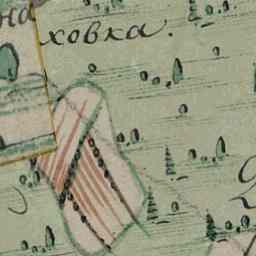 на
ховка.